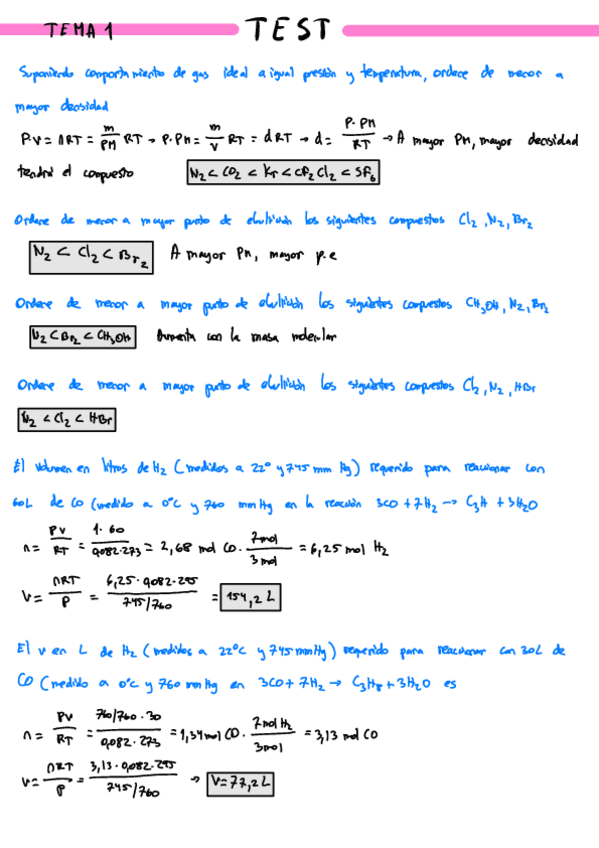 TEMA 1 TEST
Suponiendo comportamiento de gas ideal a igual presión y temperatura, ordene de menor a
mayor densidad
P·V = nRT = m/PM RT → P·PM = m/V RT = dRT → d = P·PM/RT → A mayor PM, mayor densidad
tendrá el compuesto N₂ < CO₂ < Kr < CF₂Cl₂ < SF₆
Ordene de menor a mayor punto de ebullición los siguientes compuestos Cl₂, N₂, Br₂
N₂ < Cl₂ < Br₂ A mayor PM, mayor p.e
Ordene de menor a mayor punto de ebullición los siguientes compuestos CH₃OH, N₂, Br₂
N₂ < Br₂ < CH₃OH Aumenta con la masa molecular
Ordene de menor a mayor punto de ebullición los siguientes compuestos Cl₂, N₂, HBr
N₂ < Cl₂ < HBr
El volumen en litros de H₂ (medidos a 22º y 745 mm Hg) requerido para reaccionar con
60L de CO (medido a 0ºC y 760 mmHg en la reacción 3CO + 7H₂ → C₃H + 3H₂O
n = PV/RT = 1·60/0,082·273 = 2,68 mol CO · 7mol/3mol = 6,25 mol H₂
V = nRT/P = 6,25·0,082·295/745/760 = 154,2 L
El v en L de H₂ (medidos a 22ºC y 745 mmHg) requerido para reaccionar con 30L de
CO (medido a 0ºC y 760 mmHg en 3CO + 7H₂ → C₃H₈ + 3H₂O es
n = PV/RT = 760/760·30/0,082·273 = 1,34 mol CO · 7mol H₂/3mol = 3,13 mol CO
V = nRT/P = 3,13·0,082·295/745/760 → V = 77,2 L